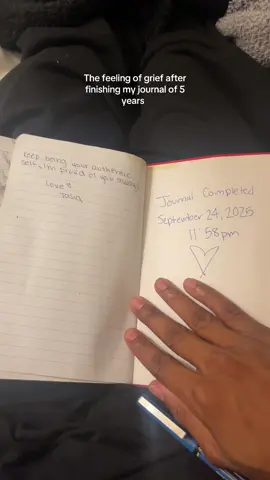 The feeling of grief after
finishing my journal of 5
years
Keep being your authentic
self, I'm proud of you
Love
Journal Completed
September 24, 2025
11:58pm